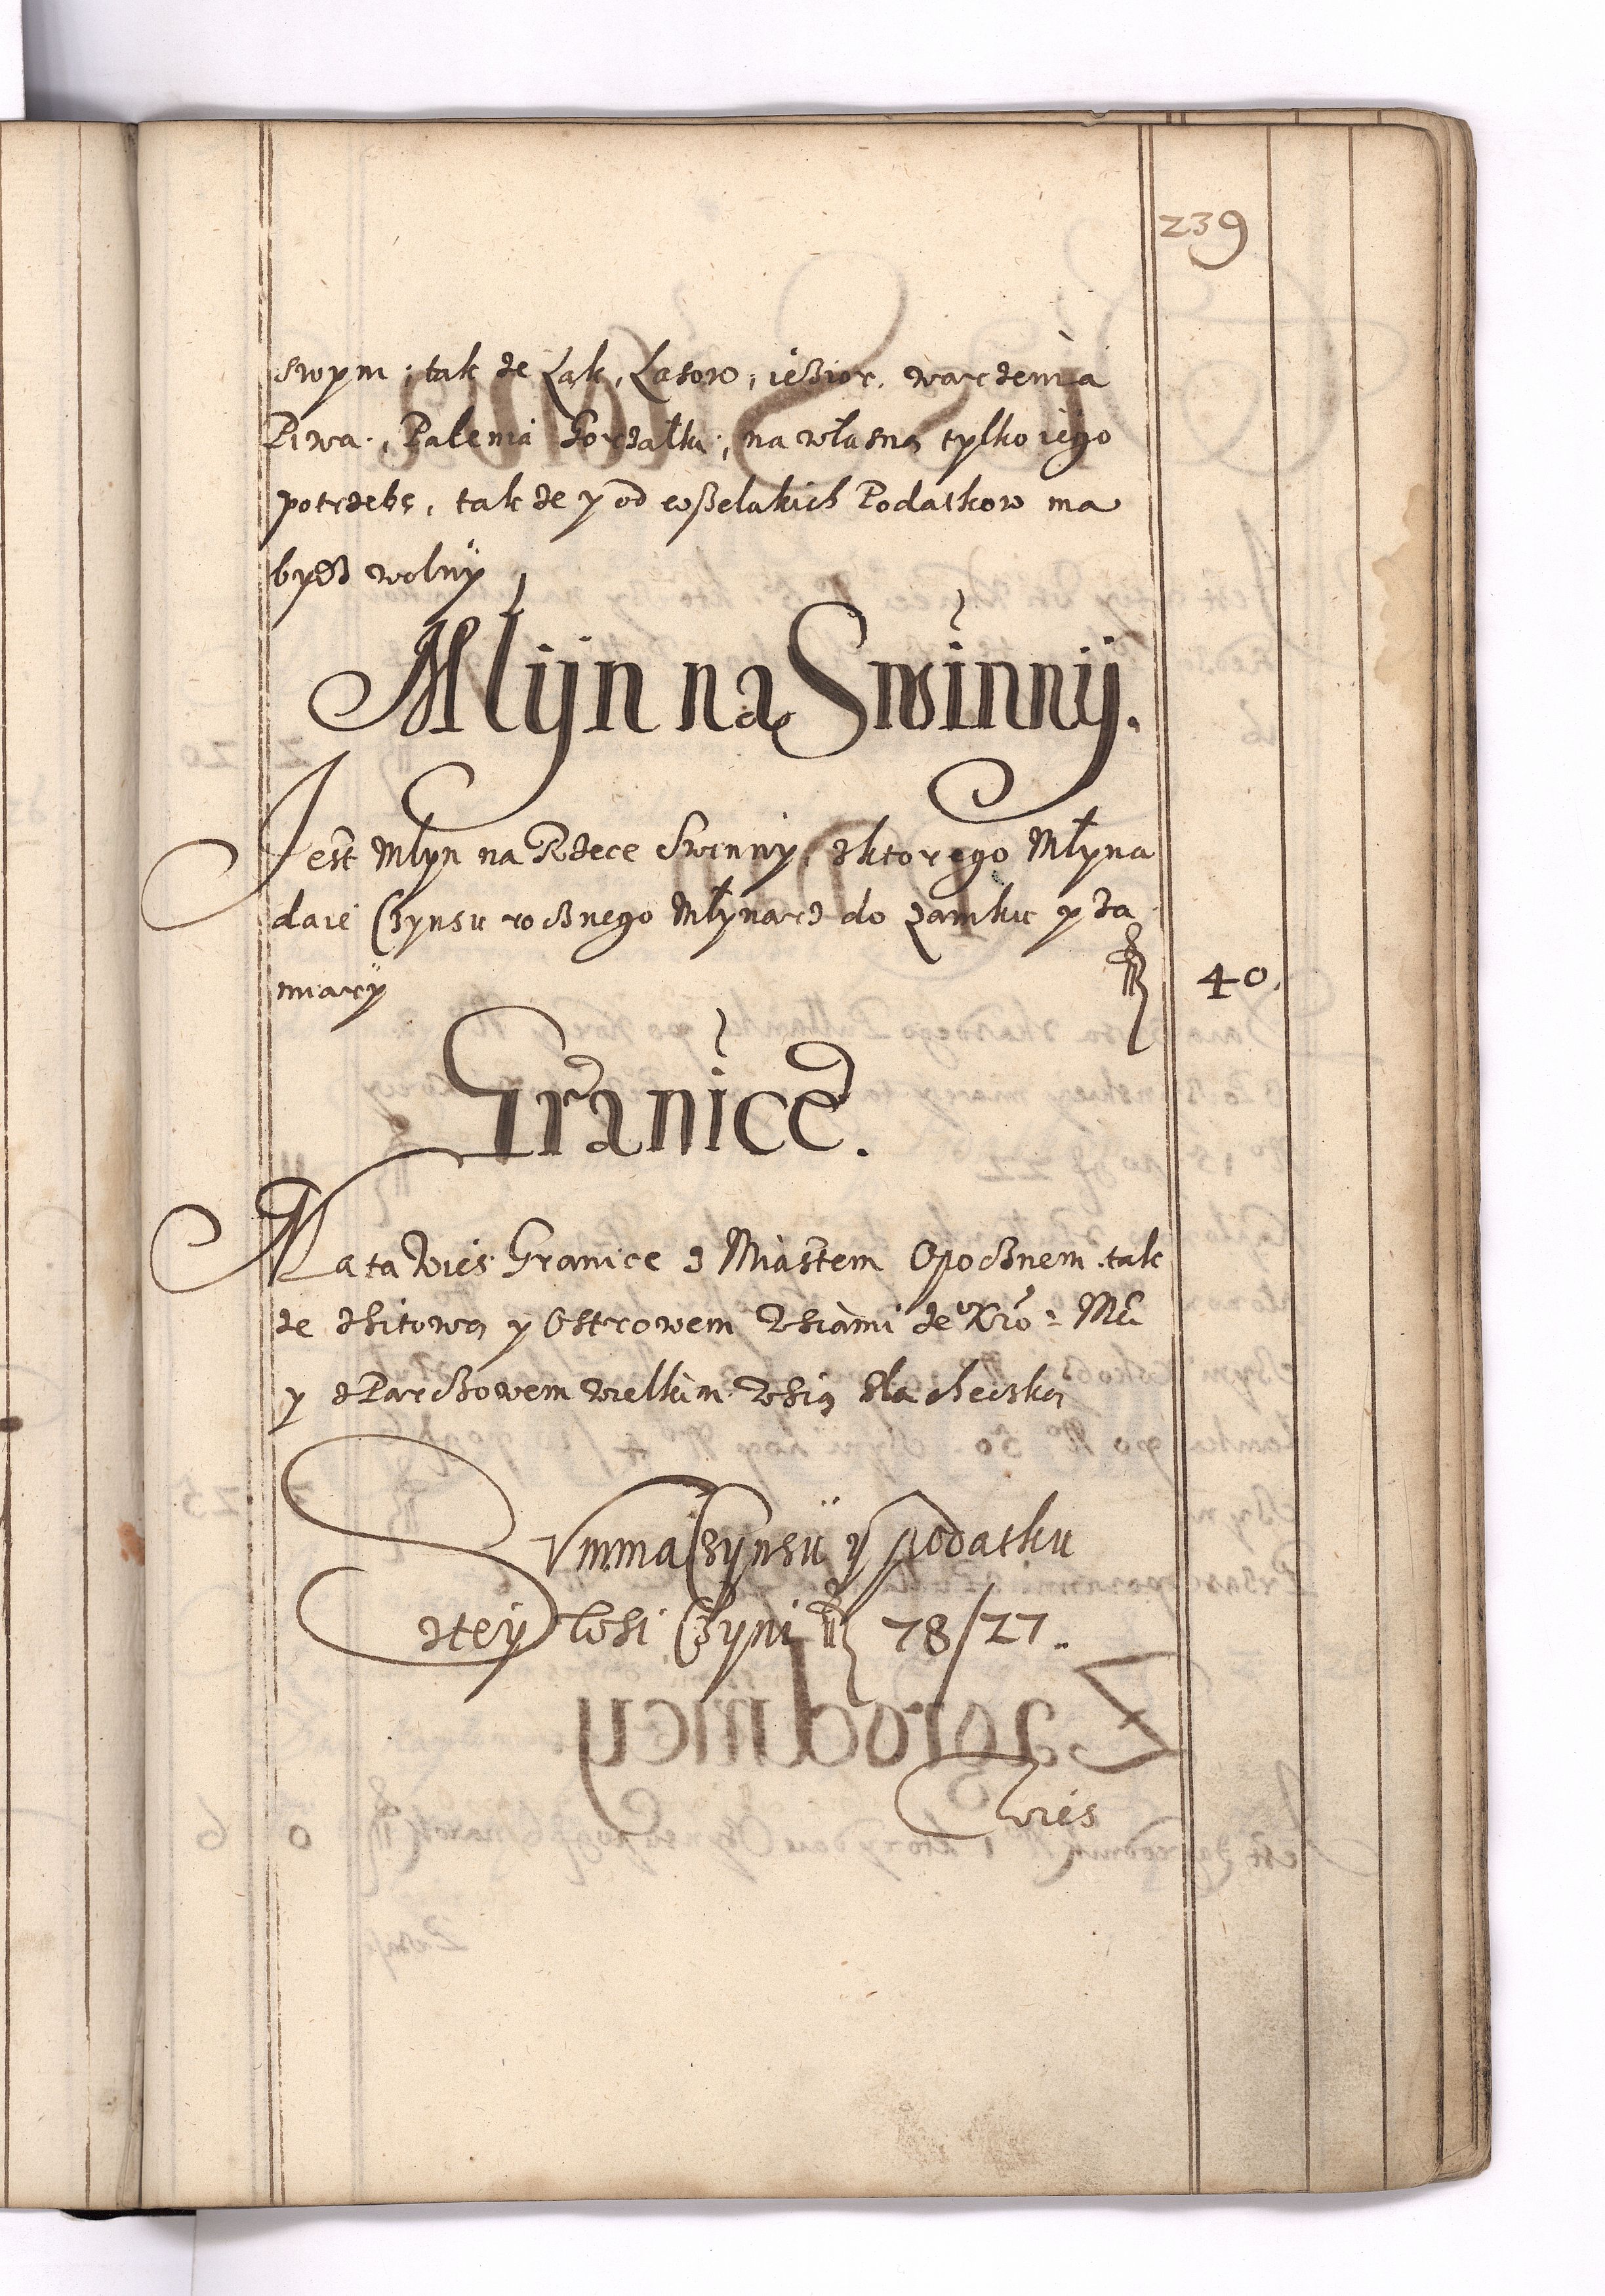 239
swym, tak że Łąk, Lasow, ieźior, warzenia
Piwa, Palenia Gorzałki, na własną tylko iego
potrzebę, tak że y od wszelakich Podatkow ma
bydź wolny
Młyn na Swinny.
Iest Młyn na Rzece Swinny, z ktorego Młyna
daie Czynsu rocznego Młynarz do Zamku y za
miary fl 40.
Granice.
Ma ta Wieś Granice z Miastem Opocznem tak
że Zsitową y Ostrowem Wsiami Je° Kró: Mći
y z Parczowem wielkim Wsią Slachecką
Summa Czynsu y podatku
z tey Wsi Czyni fl 78/27.
Wieś